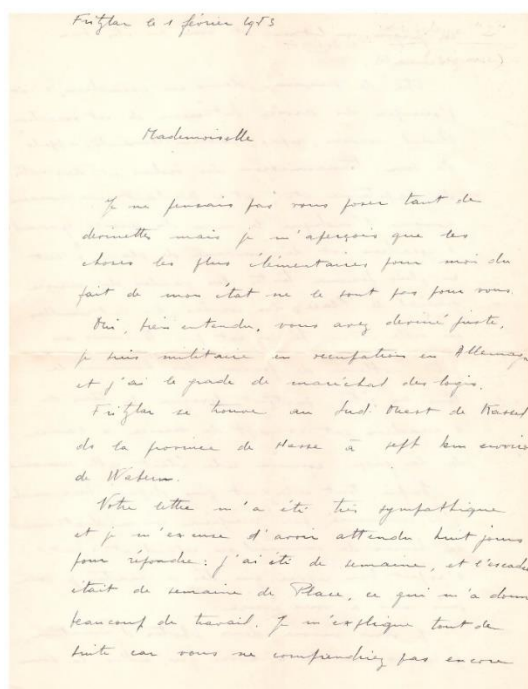 Fritzlar le 1 février 1953
Mademoiselle
Je ne pensais pas vous poser tant de
devinettes mais je m'aperçois que les
choses les plus élémentaires pour moi du
fait de mon état ne le sont pas pour vous.
Oui, bien entendu, vous avez deviné juste,
je suis militaire en occupation en Allemagne
et j'ai le grade de maréchal des logis.
Fritzlar se trouve au Sud Ouest de Kassel
ds la province de Hesse à sept km environ
de Wabern.
Votre lettre m'a été très sympathique
et je m'excuse d'avoir attendu huit jours
pour répondre : j'ai été de semaine, et l'escadron
était de semaine de Place, ce qui m'a donné
beaucoup de travail. Je m'explique tout de
suite car vous ne comprendriez pas encore